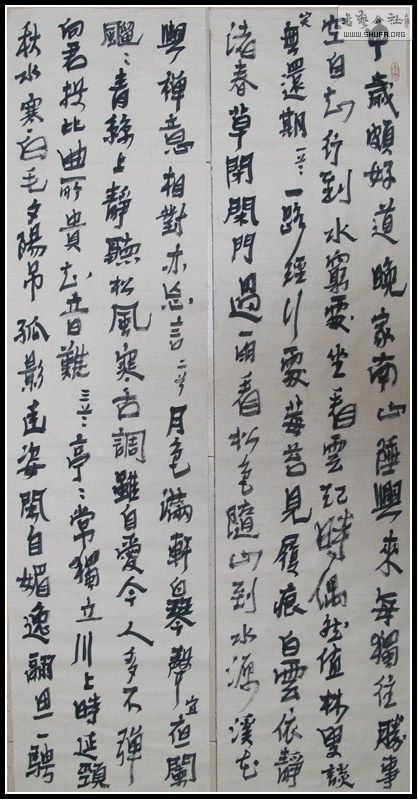 书艺公社
WWW.SHUFA.ORG
中歲頗好道晚家南山陲興來每獨往勝事
空自知行到水窮處坐看雲起時偶然值林叟談
笑無還期一首一路經行處莓苔見履痕白雲依靜
渚春草閉閑門過雨看松色隨山到水源溪花
與禪意相對亦忘言二首月色滿軒白琴聲宜夜闌
飀〻青絲上靜聽松風寒古調雖自愛今人多不彈
向君投此曲所貴知音難三首亭〻常獨立川上時延頸
秋水寒白毛夕陽吊孤影幽姿閑自媚逸翮思一騁